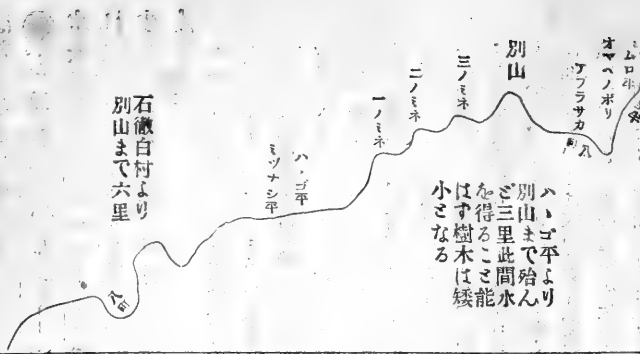 ムロ
オヤヘノボリ
アブラサカ
八町
別山
三ノミネ
二ノミネ
一ノミネ
ハヽゴ平
ミヅナシ平
ハヽゴ平より
別山まで殆ん
ど三里此間水
を得ること能
はず樹木は矮
小となる
石徹白村より
別山まで六里
八町